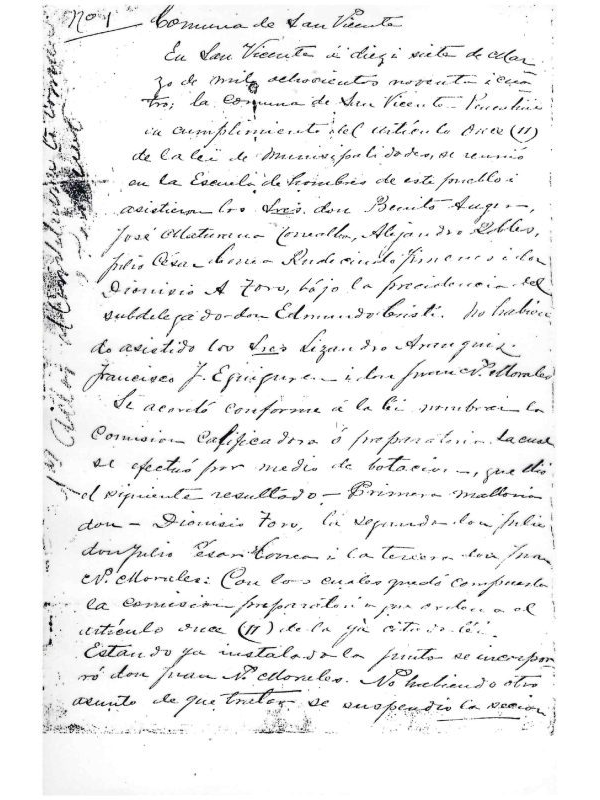 No 1 Comuna de San Vicente
En San Vicente á diez i siete de Mar
zo de mil ochocientos noventa i cua
tro; la comuna de San Vicente
en cumplimiento del artículo once (11)
de la lei de Municipalidades, se reunió
en la Escuela de hombres de este pueblo i
asistieron los Sres. don Benito Auger,
José Maturana, Alejandro Robles,
Julio César Correa Rudecindo Jimenes i don
Dionisio A Toro, bajo la presidencia del
subdelegado don Edmundo Cristi. No habien
do asistido los Sres Lizandro Aranguis.
Francisco J. Eguiguren i don Juan N. Morales
Se acordó conforme á la lei nombrar la
Comision Calificadora ó preparatoria. La cual
se efectuó por medio de botacion, que dió
el siguiente resultado - Primera malloria
don - Dionisio Toro, la segunda don Julio
don Julio César Correa i la tercera don Juan
N. Morales: Con los cuales quedó compuesta
la comision preparatoria que ordena el
artículo once (11) de la ya citada lei.
Estando ya instalada la junta se incorpor
ró don Juan N. Morales. No habiendo otro
asunto de que tratar se suspendio la seccion